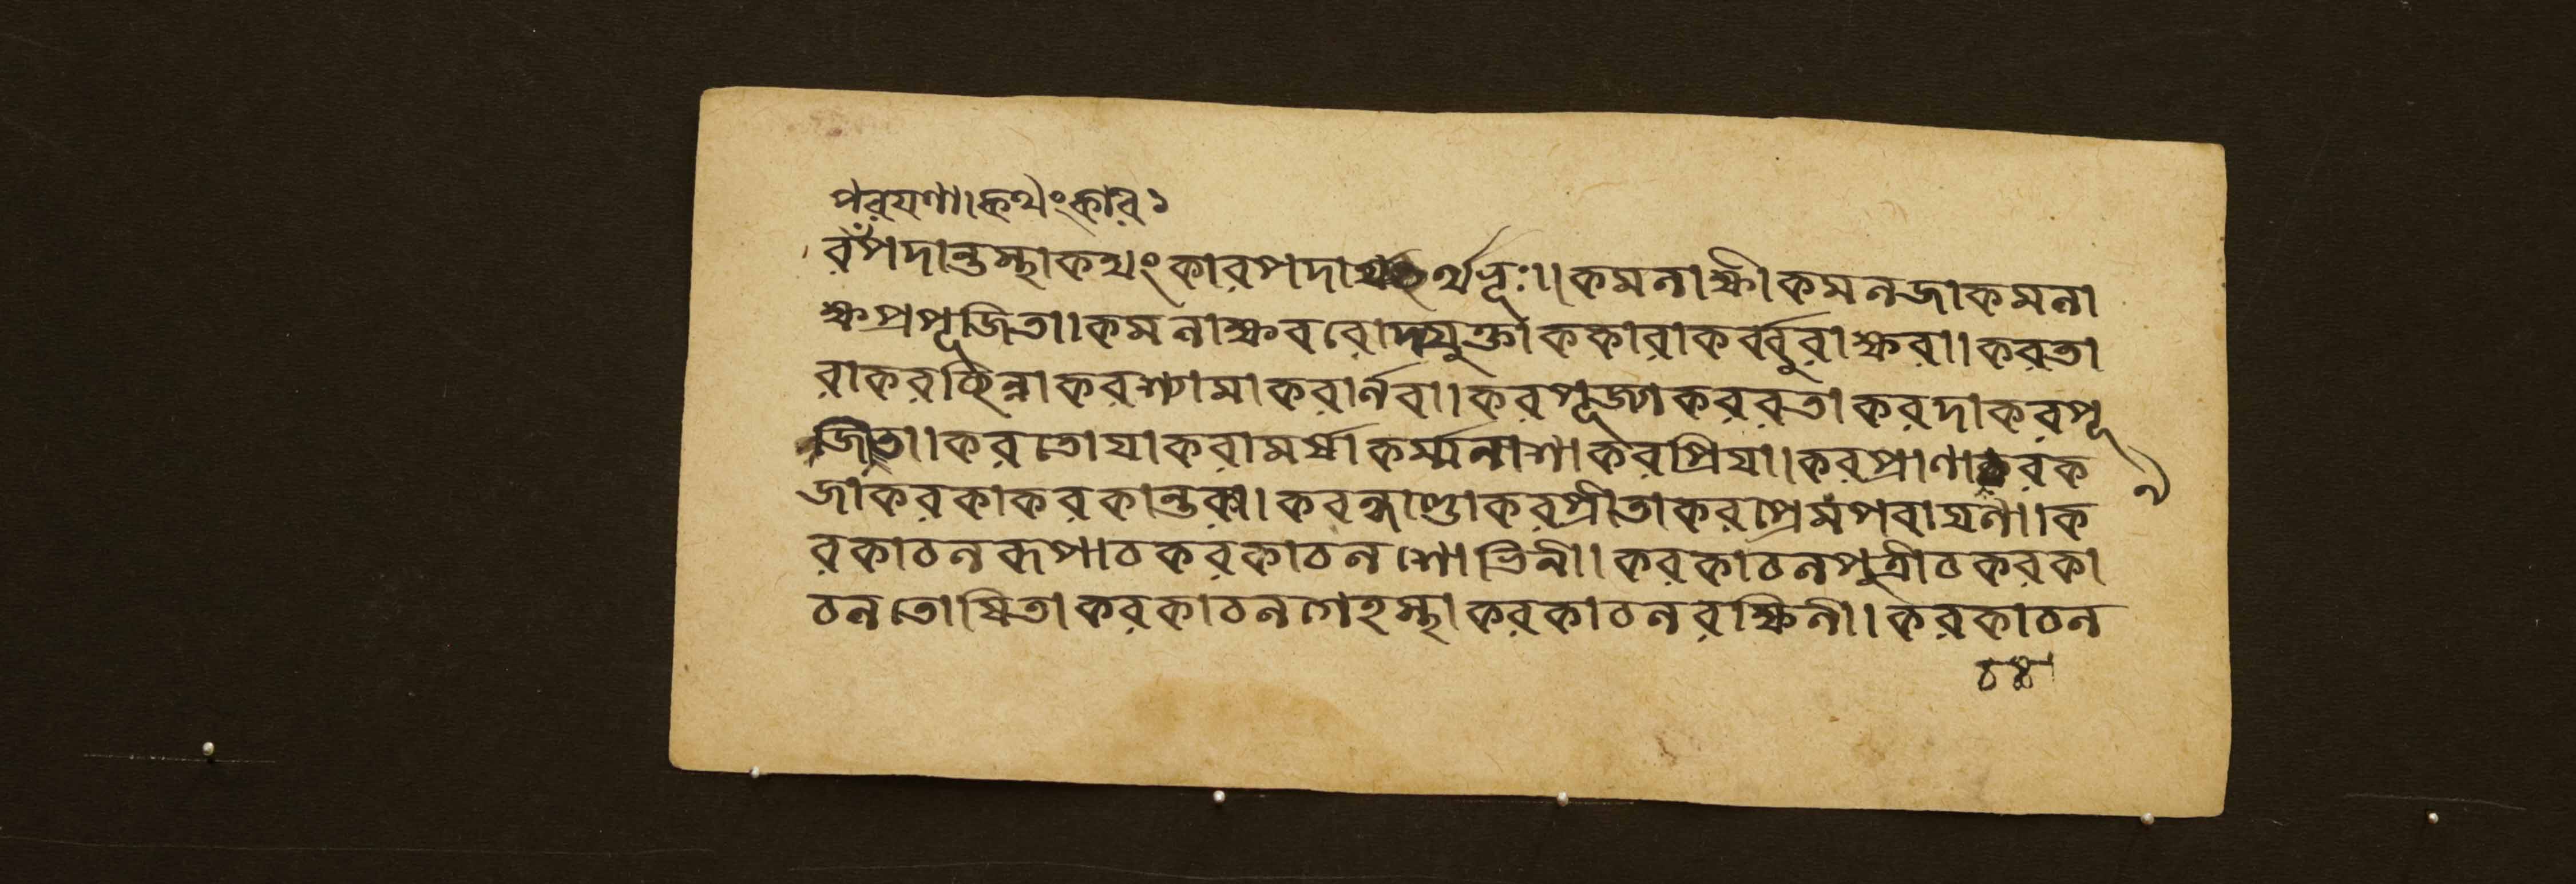 পরযণা। কথংকার ১
রঁপদান্তস্থাকথংকারপদার্থভূঃ।।কমনাক্ষীকমনজাকমনা
ক্ষপ্রপূজিতা।।কমনাক্ষবরোদযুক্তাককারাকর্ব্বুরাক্ষরা।।করতা
রাকরছিন্নাকরশ্যামাকরার্নবা।।করপূজ্যাকররতাকরদাকরপূ
জিতা।।করতোযাকরামর্ষাকর্ম্মনাশাকরপ্রিযা।।করপ্রাণাকরক
জাকরকাকরকান্তকা।করকাকরপ্রীতাকরপ্রেমপরাযণা।।ক
রকাঠনরূপাঠকরকাঠনশোভিনী।।করকাঠনপুত্রীঠকরকা
ঠনতোষিতাকরকাঠনগেহস্থাকরকাঠনরক্ষিনী।।করকাঠন